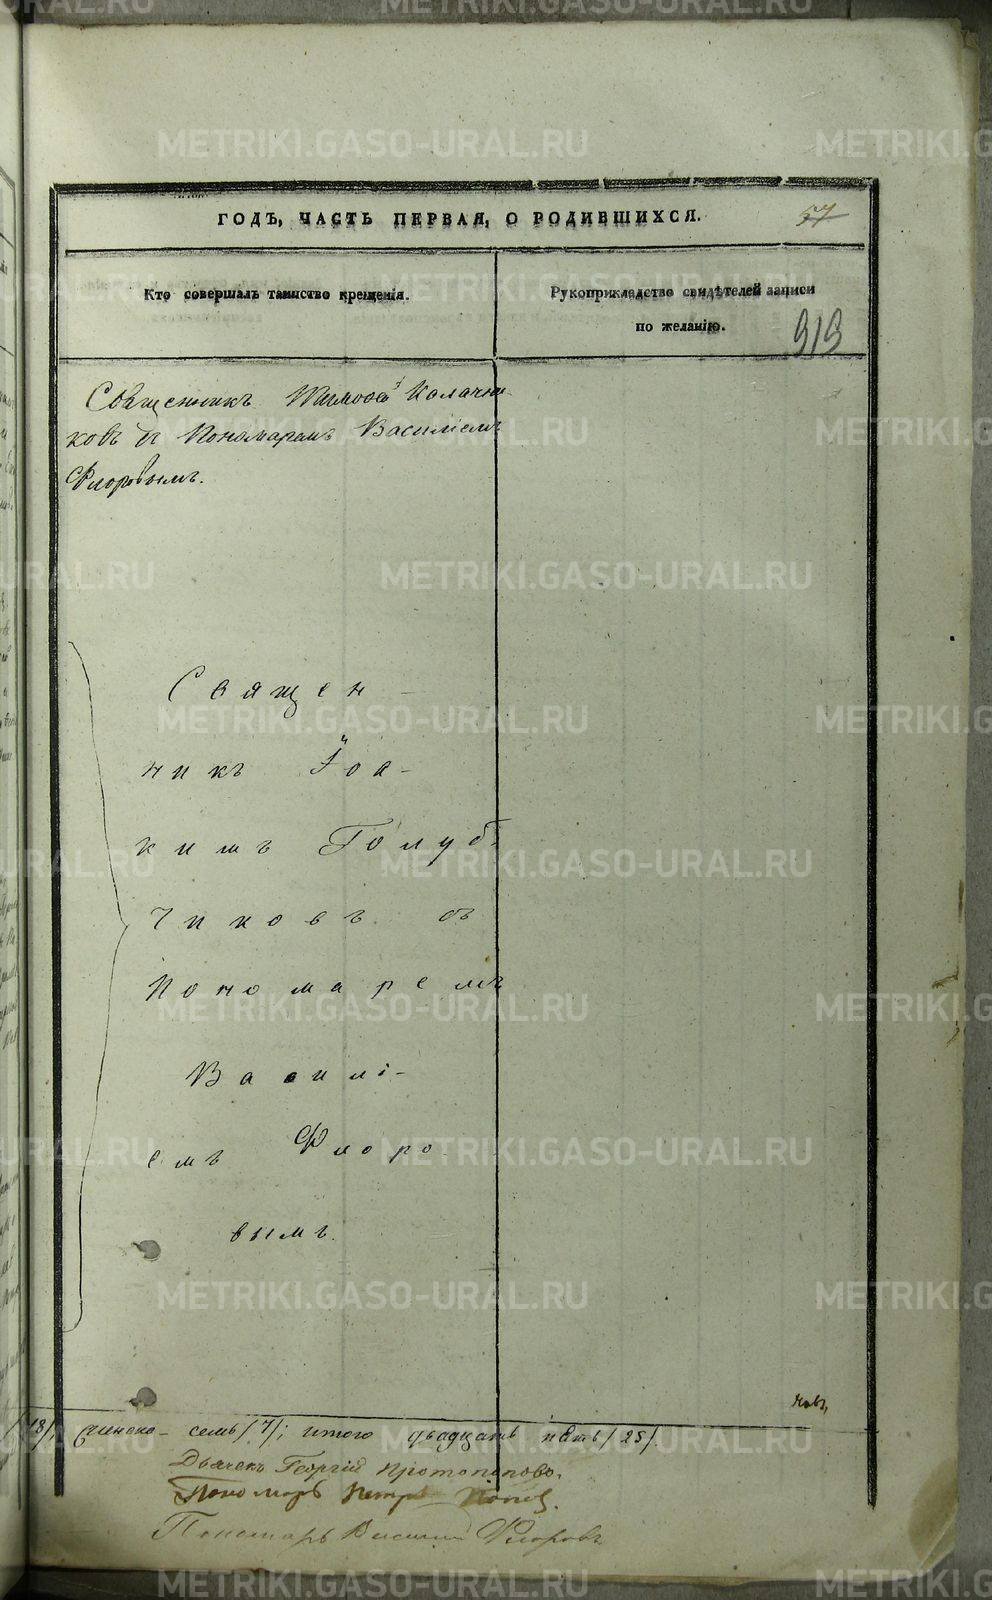 ГОДЪ, ЧАСТЬ ПЕРВАЯ, О РОДИВШИХСЯ.
57
Кто совершалъ таинство крещенія.
Рукоприкладство свидѣтелей записи
по желанію.
919
Священникъ Колачни-
ковъ Пономаремъ Василіемъ
Флоровымъ.
Священ-
никъ Іоа-
кимъ Голуб-
чиковъ съ
Пономаремъ
Василі-
емъ Флоро-
вымъ.
/18/, женска- семь /7/; итого двадцать пять /25/.
Дьячекъ Георгій Протопоповъ.
Пономарь Петръ Поповъ.
Пономарь Василій Флоровъ
METRIKI.GASO-URAL.RU